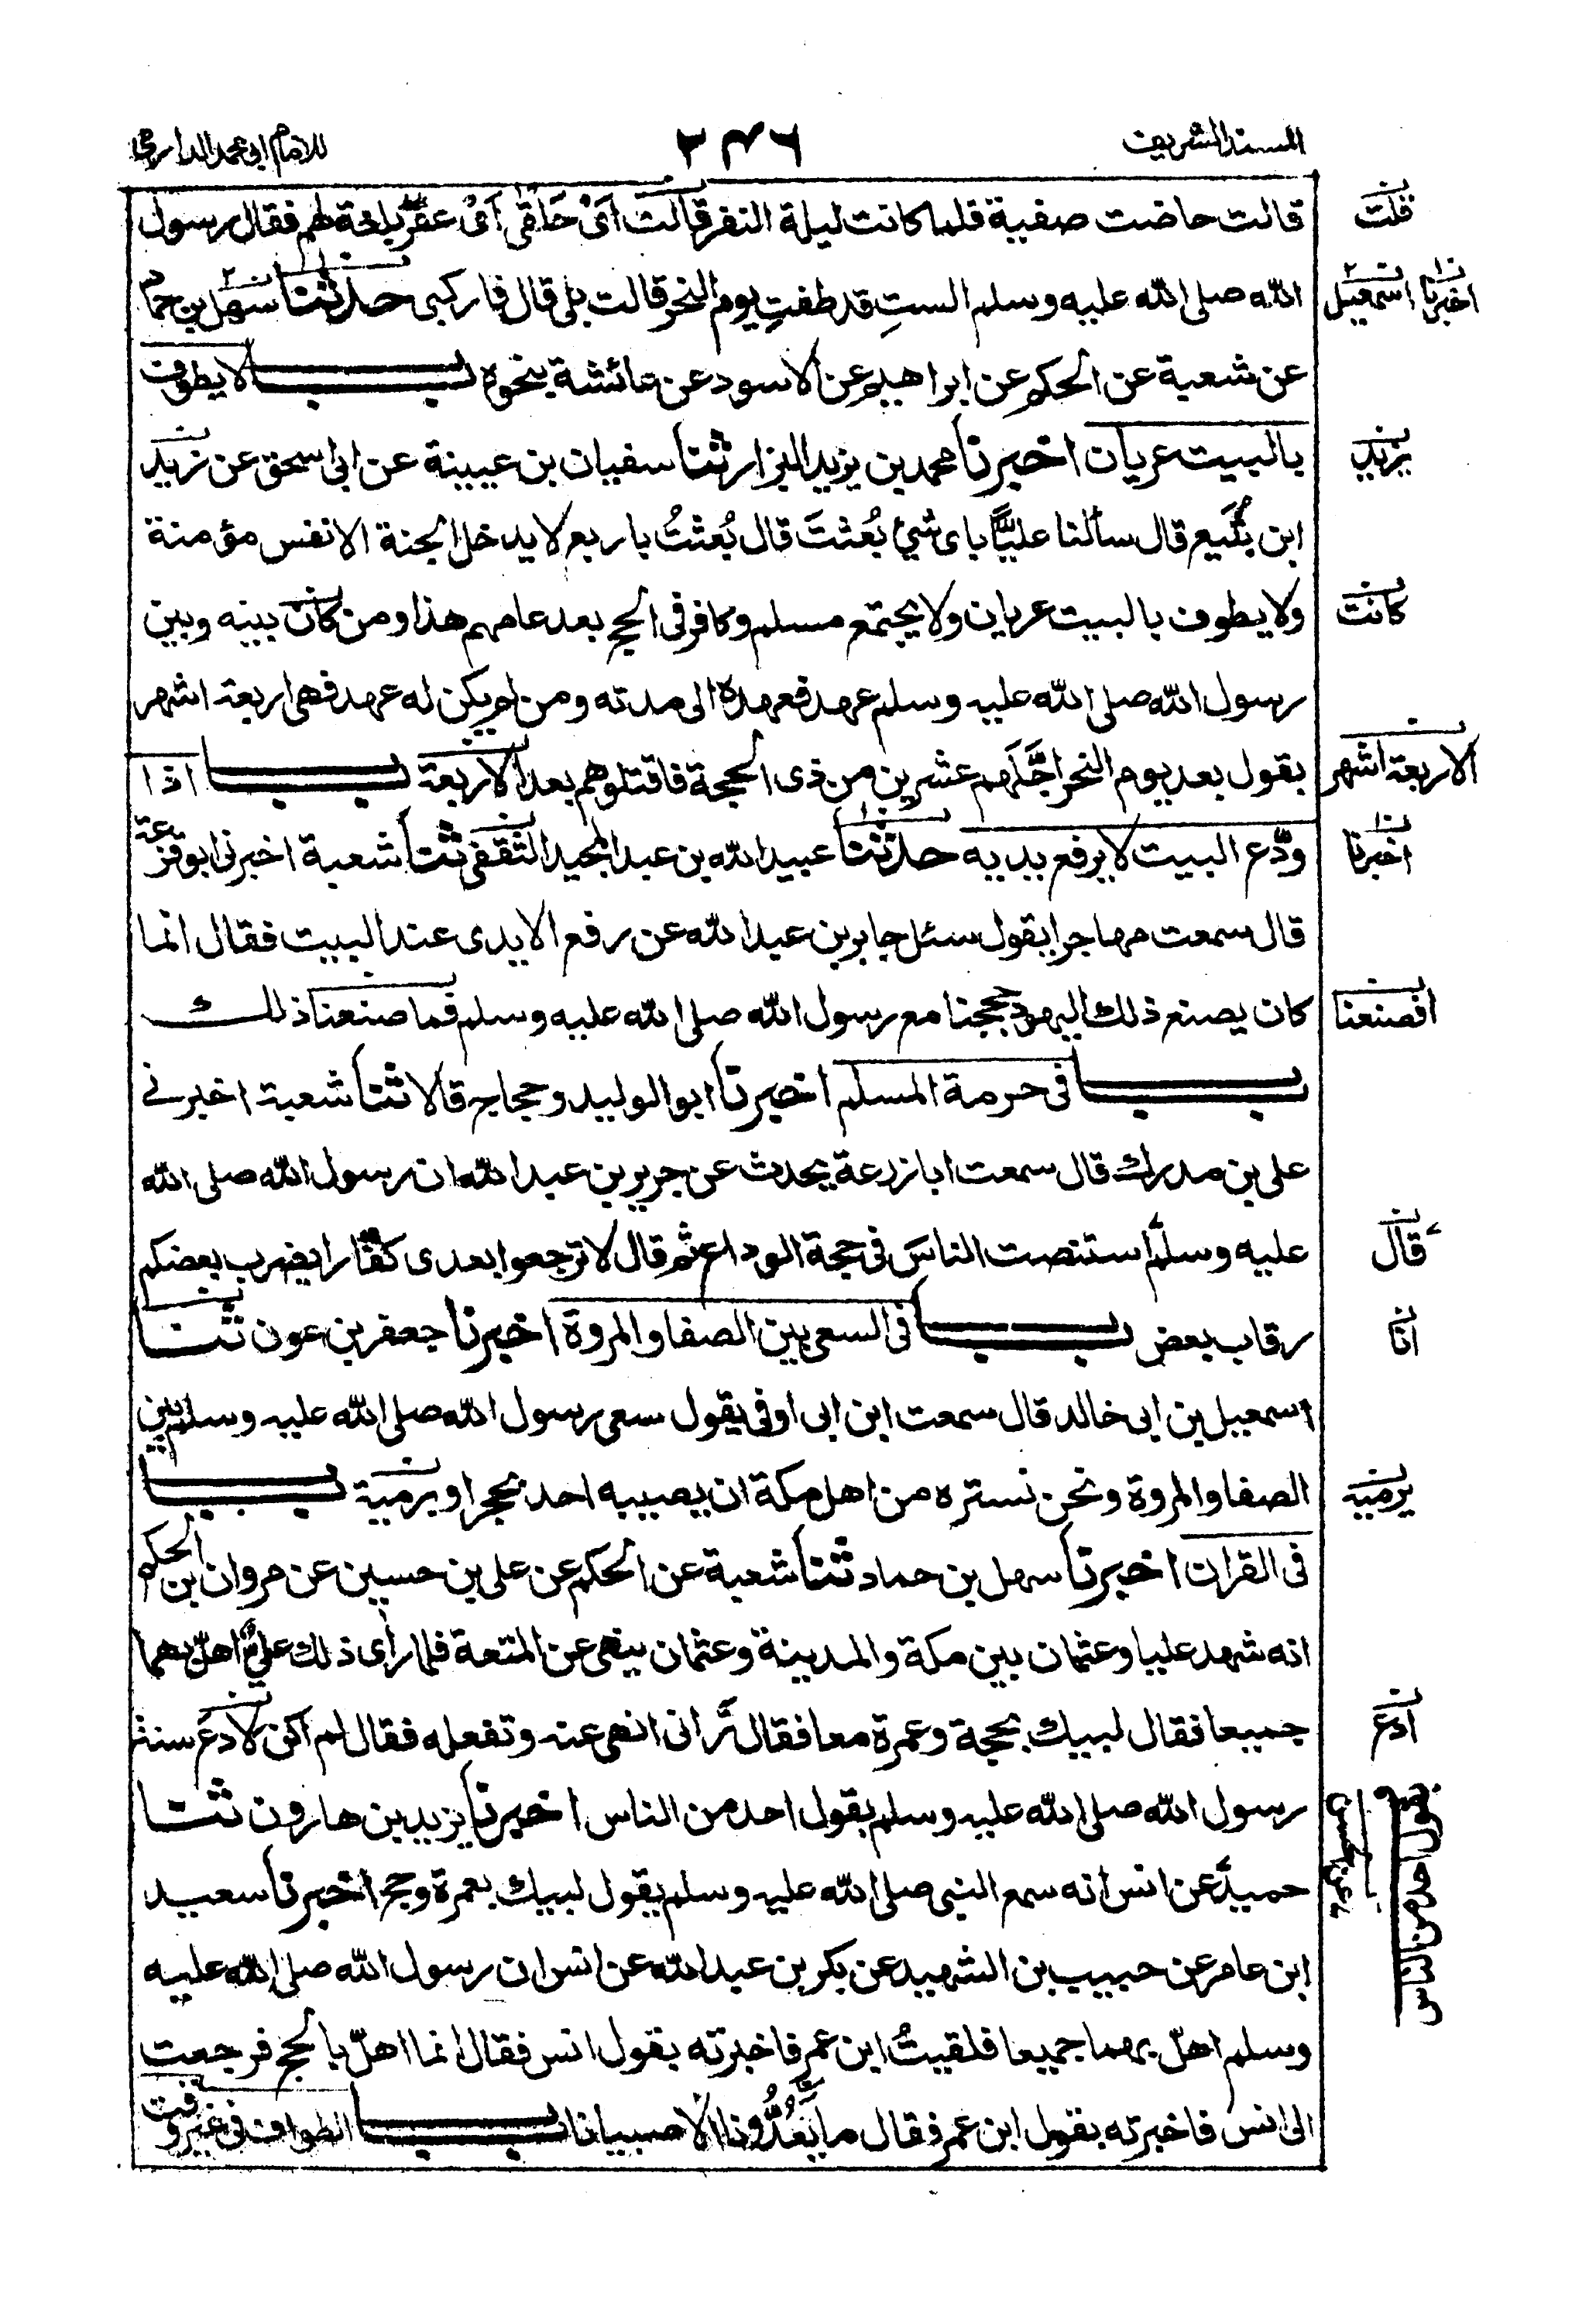 المسند الشريف
٢٤٦
للامام ابى محمد الدارمى
قالت حاضت صفية فلما كانت ليلة النفر قالت اَىْ حَلقٰى اَىْ عَقرٰى بلغة لهم فقال رسول
قلت
الله صلى الله عليه وسلم الستِ قد طفتِ يوم النحر قالت بلى قال فاركبى حدثنا سهل بن حماد
اخبرنا اسمعيل
عن شعبة عن الحكم عن ابراهيم عن الاسود عن عائشة بنحوه باب لا يطوف
بالبيت عريان اخبرنا محمد بن يزيد البزار ثنا سفيان بن عيينة عن ابى اسحق عن زيد
يزيد
ابن يُثَيع قال سألنا عليًّا باى شئ بُعثتَ قال بُعثتُ باربع لا يدخل الجنة الا نفس مؤمنة
ولا يطوف بالبيت عريان ولا يجتمع مسلم وكافر فى الحج بعد عامهم هذا ومن كان بينه وبين
كانت
رسول الله صلى الله عليه وسلم عهد فعهده الى مدته ومن لم يكن له عهد فهى اربعة اشهر
يقول بعد يوم النحر اجَّلَهم عشرين من ذى الحجة فاقتلوهم بعد الاربعة باب اذا
الاربعة اشهر
ودّع البيت لا يرفع يديه حدثنا عبيد الله بن عبد المجيد الثقفى ثنا شعبة اخبرنى ابو قزعة
اخبرنا
قال سمعت مهاجرا يقول سئل جابر بن عبد الله عن رفع الايدى عند البيت فقال انما
كان يصنع ذلك اليهود حججنا مع رسول الله صلى الله عليه وسلم فما صنعنا ذلك
افصنعنا
باب فى حرمة المسلم اخبرنا ابو الوليد وحجاج قالا ثنا شعبة اخبرنى
على بن مدرك قال سمعت ابا زرعة يحدث عن جرير بن عبد الله ان رسول الله صلى الله
عليه وسلَّم استنصت الناسَ فى حجة الوداع ثم قال لا ترجعوا بعدى كفّارا يضرب بعضكم
قال
رقاب بعض باب فى السعى بين الصفا والمروة اخبرنا جعفر بن عون ثنا
انا
اسمعيل بن ابى خالد قال سمعت ابن ابى اوفى يقول سعى رسول الله صلى الله عليه وسلم بين
الصفا والمروة ونحن نستره من اهل مكة ان يصيبه احد بحجر او برمية باب
يرميه
فى القران اخبرنا سهل بن حماد ثنا شعبة عن الحكم عن على بن حسين عن مروان بن الحكم
انه شهد عليا وعثمان بين مكة والمدينة وعثمان ينهى عن المتعة فلما راٰى ذلك علىٌّ اهلّ بهما
جميعا فقال لبيك بحجة وعمرة معا فقال تَرانى انهى عنه وتفعله فقال لم اكن لادعَ سنة
ادع
رسول الله صلى الله عليه وسلم بقول احد من الناس اخبرنا يزيد بن هارون ثنا
بقول احد من الناس
حميد عن انس انه سمع النبى صلى الله عليه وسلم يقول لبيك بعمرة وحج اخبرنا سعيد
ابن عامر عن حبيب بن الشهيد عن بكر بن عبد الله عن انس ان رسول الله صلى الله عليه
وسلم اهلّ بهما جميعا فلقيتُ ابن عمر فاخبرته بقول انس فقال انما اهلّ بالحج فرجعت
الى انس فاخبرته بقول ابن عمر فقال ما يَعُدُّونا الا صبيانا باب الطواف فى غير وقت